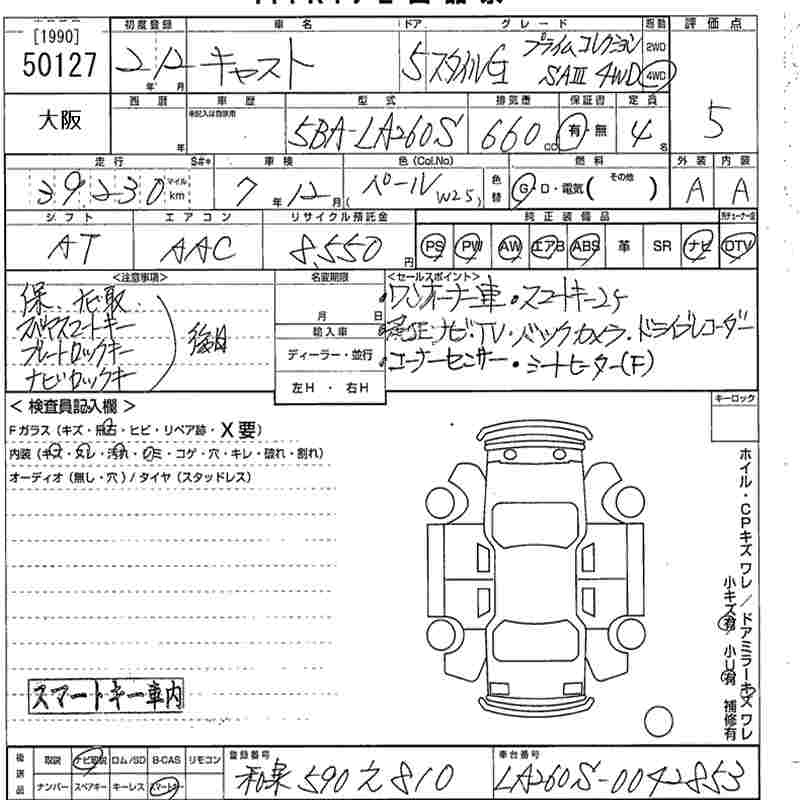 [1990]
50127
初度登録 車名 ドア グレード 駆動 評価点
年 月
キャスト
5
スタイルG
プライムコレクション
SAⅢ 4WD
2WD
4WD
5
大阪
西暦 車歴 型式 排気量 保証書 定員
年 未記入は自家用
5BA-LA260S
660 cc
有・無
4 名
走行 S#* 車検 色(Col.No) 燃料 外装 内装
39230 マイル km
7年12月
パール W25
色替
G・D・電気( その他 )
A A
シフト エアコン リサイクル預託金 純正装備品
AT AAC 8,550 円
PS PW AW エアB ABS 革 SR ナビ DTV
<注意事項> 名変期限 <セールスポイント>
保、ナビ取
スペアスマートキー
プレートロックキー
ナビロックキー
後日
月 日
輸入車
ディーラー・並行
左H ・ 右H
・ワンオーナー車・スマートキー2ケ
純正ナビ・TV・バックカメラ・ドライブレコーダー
コーナーセンサー・シートヒーター(F)
<検査員記入欄>
Fガラス(キズ・飛石・ヒビ・リペア跡・X要)
内装(キズ・スレ・汚れ・シミ・コゲ・穴・キレ・破れ・割れ)
オーディオ(無し・穴)/タイヤ(スタッドレス)
キーロック
ホイル・CPキズ ワレ/ドアミラーキズ ワレ
小キズ有 小U有 補修有
スマートキー車内
後送品
取説 ナビ取説 ロム/SD B-CAS リモコン
ナンバー スペアキー キーレス スマートキー
登録番号
和泉 590 え 810
車台番号
LA260S-0042853